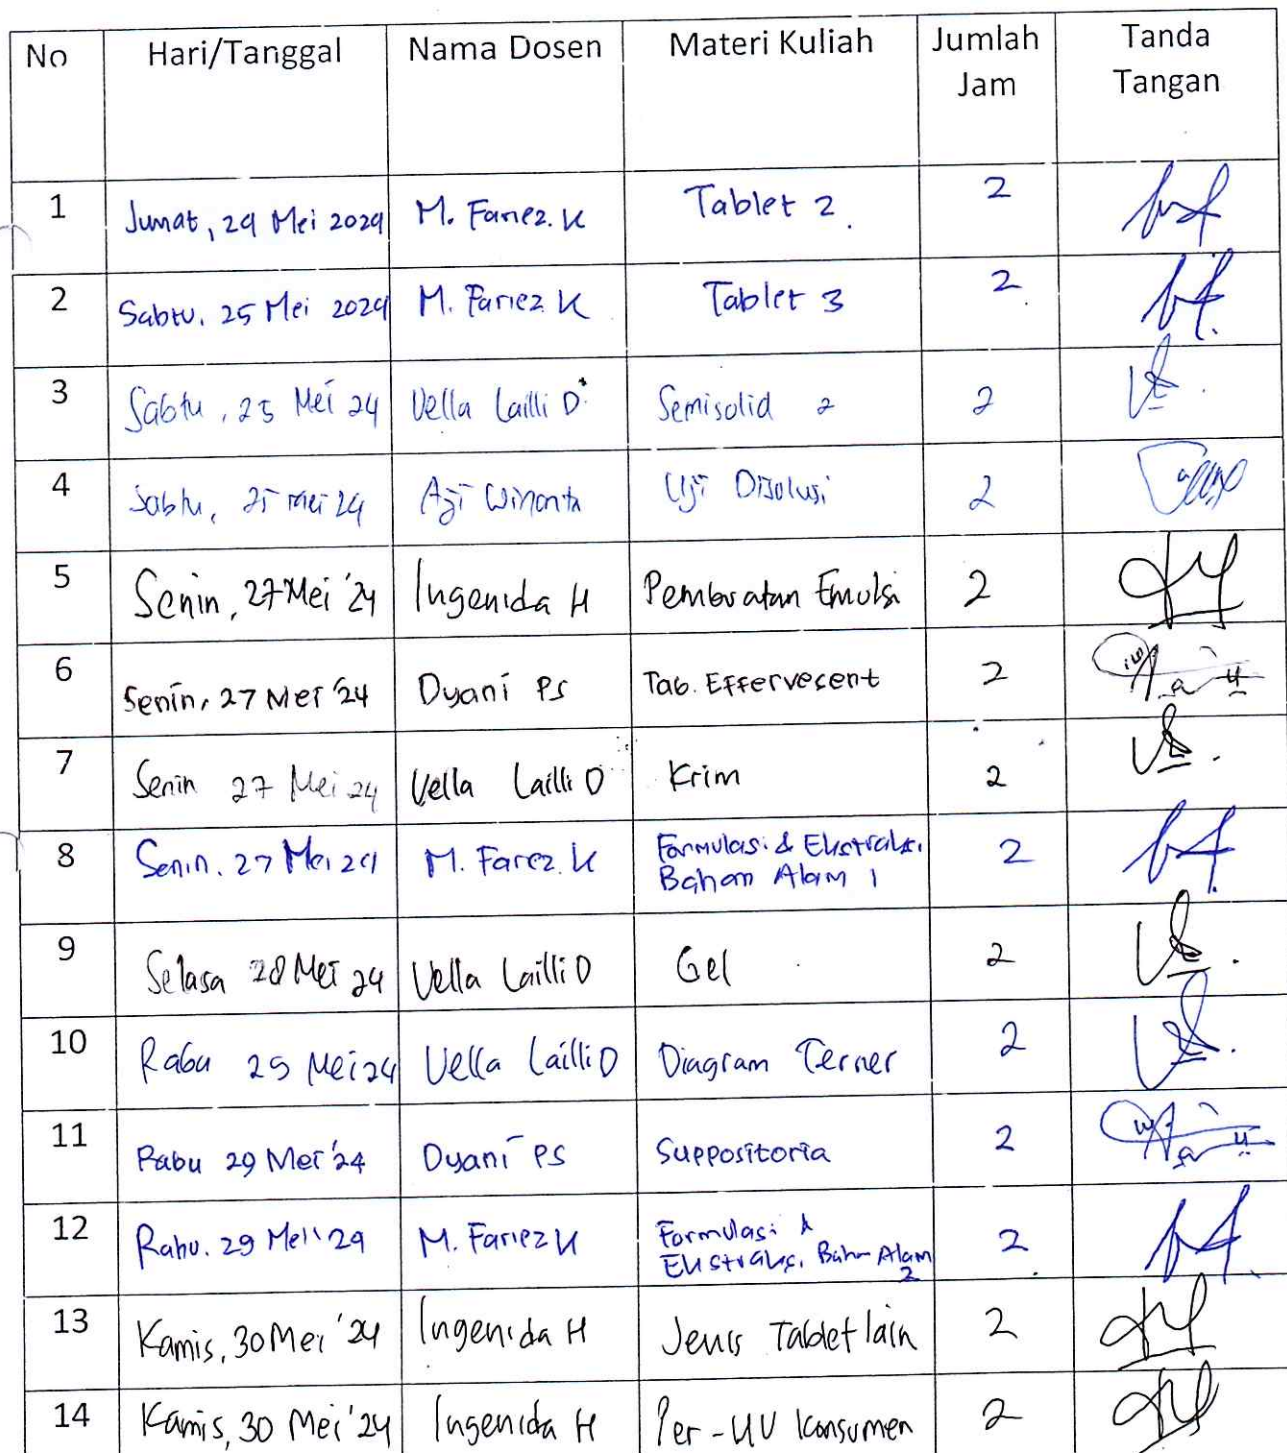 No Hari/Tanggal Nama Dosen Materi Kuliah Jumlah Jam Tanda Tangan
1 Jumat, 24 Mei 2024 M. Fariez. K Tablet 2. 2
2 Sabtu, 25 Mei 2024 M. Fariez K Tablet 3 2
3 Sabtu, 25 Mei 24 Vella Lailli D Semisolid 2 2
4 Sabtu, 25 Mei 24 Aji Winanta Uji Disolusi 2
5 Senin, 27 Mei '24 Ingenida H Pembuatan Emulsi 2
6 Senin, 27 Mei '24 Dyani PS Tab. Effervecent 2
7 Senin 27 Mei 24 Vella Lailli D Krim 2
8 Senin. 27 Mei 24 M. Fariez. K Formulasi & Ekstraksi
Bahan Alam 1 2
9 Selasa 28 Mei 24 Vella Lailli D Gel 2
10 Rabu 29 Mei 24 Vella Lailli D Diagram Terner 2
11 Rabu 29 Mei '24 Dyani PS Suppositoria 2
12 Rabu. 29 Mei '24 M. Fariez K Formulasi &
Ekstraksi Bahan Alam 2 2
13 Kamis, 30 Mei '24 Ingenida H Jenis Tablet lain 2
14 Kamis, 30 Mei '24 Ingenida H Per-UU Konsumen 2